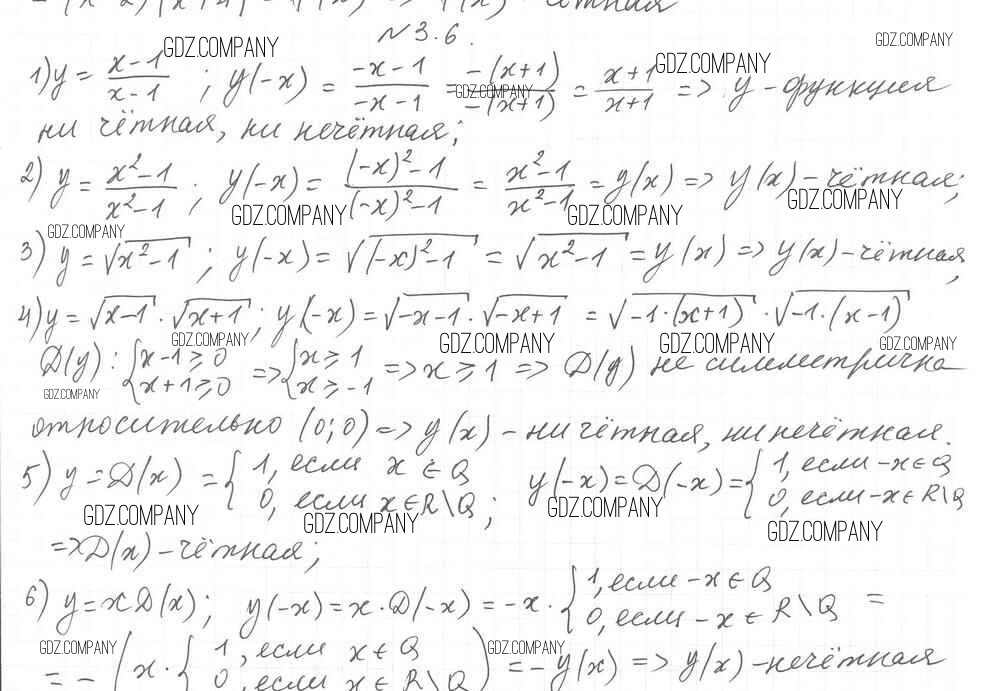 N 3.6.
GDZ.COMPANY
GDZ.COMPANY
1) y = (x-1)/(x-1) ; y(-x) = (-x-1)/(-x-1) = (-(x+1))/(-(x+1)) = (x+1)/(x+1) => y - функция
GDZ.COMPANY
GDZ.COMPANY
ни чётная, ни нечётная;
2) y = (x²-1)/(x²-1) ; y(-x) = ((-x)²-1)/((-x)²-1) = (x²-1)/(x²-1) = y(x) => y(x) - чётная;
GDZ.COMPANY
GDZ.COMPANY
GDZ.COMPANY
GDZ.COMPANY
3) y = √(x²-1) ; y(-x) = √((-x)²-1) = √(x²-1) = y(x) => y(x) - чётная,
4) y = √(x-1) · √(x+1) ; y(-x) = √(-x-1) · √(-x+1) = √(-1·(x+1)) · √(-1·(x-1))
GDZ.COMPANY
GDZ.COMPANY
GDZ.COMPANY
GDZ.COMPANY
D(y) : { x-1≥0 x+1≥0 => { x≥1 x≥-1 => x≥1 => D(y) не симметрична
GDZ.COMPANY
относительно (0;0) => y(x) - ни чётная, ни нечётная.
5) y = D(x) = { 1, если x ∈ Q 0, если x ∈ R\Q ; y(-x) = D(-x) = { 1, если -x ∈ Q 0, если -x ∈ R\Q
GDZ.COMPANY
GDZ.COMPANY
GDZ.COMPANY
GDZ.COMPANY
=> D(x) - чётная;
6) y = xD(x) ; y(-x) = x·D(-x) = -x · { 1, если -x ∈ Q 0, если -x ∈ R\Q =
GDZ.COMPANY
GDZ.COMPANY
= -( x · { 1, если x ∈ Q 0, если x ∈ R\Q ) = -y(x) => y(x) - нечётная